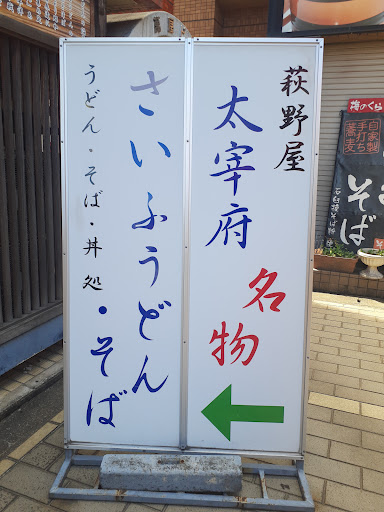 萩野屋
太宰府
名物
さいふうどん・そば
うどん・そば・丼処
梅のくら
自家製
手打ち
蕎麦
そば